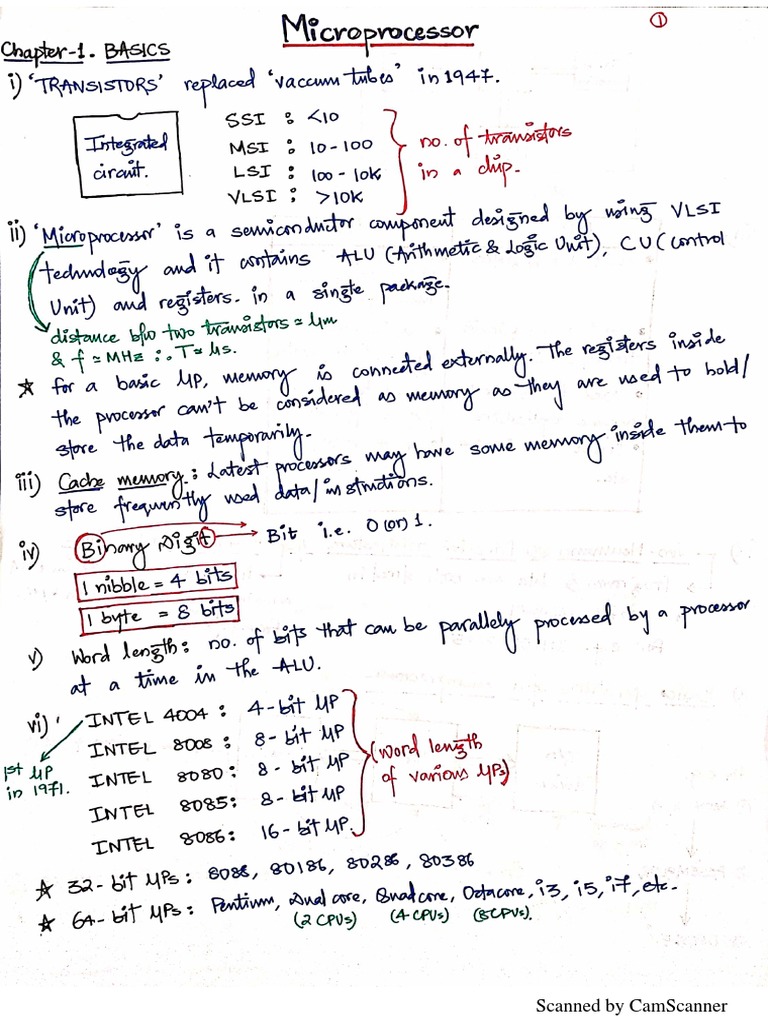 Microprocessor
1
Chapter-1. BASICS
i) 'TRANSISTORS' replaced 'vaccum tubes' in 1947.
Integrated circuit.
SSI : <10
MSI : 10-100
LSI : 100 - 10K
VLSI : >10K
no. of transistors
in a chip.
ii) 'Microprocessor' is a semiconductor component designed by using VLSI
technology and it contains ALU (Arithmetic & Logic Unit), CU (control
Unit) and registers. in a single package.
distance b/w two transistors ≃ μm
& f ≃ MHz ∴ T ≃ μs.
☆ for a basic μP, memory is connected externally. The registers inside
the processor can't be considered as memory as they are used to hold/
store the data temporarily.
iii) Cache memory : Latest processors may have some memory inside them to
store frequently used data/instructions.
iv) Binary Digit → Bit i.e. 0 (or) 1.
1 nibble = 4 bits
1 byte = 8 bits
v) Word length: no. of bits that can be parallely processed by a processor
at a time in the ALU.
vi) INTEL 4004 : 4-bit μP
INTEL 8008 : 8-bit μP
INTEL 8080 : 8-bit μP
INTEL 8085: 8-bit μP
INTEL 8086: 16-bit μP.
1st μP
in 1971.
(word length
of various μPs)
☆ 32-bit μPs : 8088, 80186, 80286, 80386
☆ 64-bit μPs : Pentium, Dual core, Quad core, Octacore, i3, i5, i7, etc.
(2 CPUs) (4 CPUs) (8 CPUs).
Scanned by CamScanner